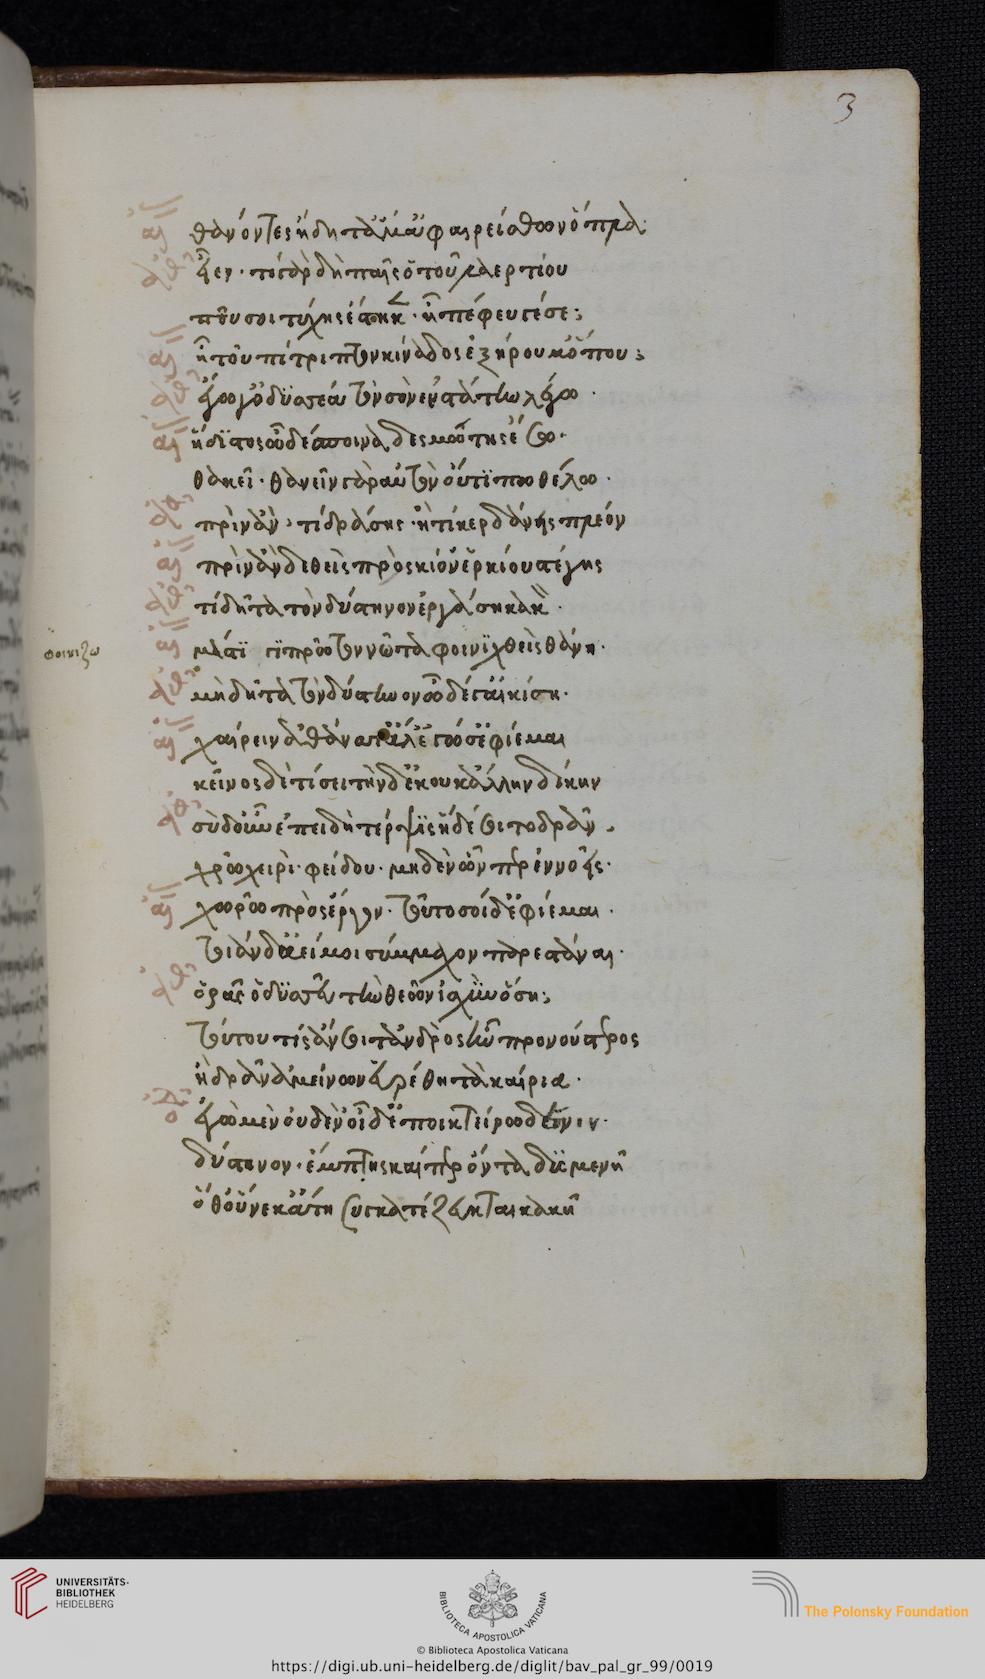 3
αἴ θανόντες ἤδη τἄμ' ἀφαιρείσθων ὅπλα
ἀθ εἶεν · τί γὰρ δὴ παῖς ὁ τοῦ λαερτίου
ποῦ σοι τύχης ἕστηκεν · ἢ πέφευγέ σε;
αἴ ἦ τοὐπίτριπτον κίναδος ἐξήρου μ' ὅπου;
ἀθ ἔγωγ' ὀδυσσέα τὸν σὸν ἐνστάτην λέγω ·
αἴ ἥδιστος ὦ δέσποινα δεσμώτης ἔσω ·
θακεῖ · θανεῖν γὰρ αὐτὸν οὔτί πω θέλω ·
ἀθ πρὶν ἂν τί δράσῃς · ἢ τί κερδάνῃς πλέον
αἴ πρὶν ἂν δεθεὶς πρὸς κίον' ἑρκίου στέγης
ἀθ τί δῆτα τὸν δύστηνον ἐργάσῃ κακόν ·
φοινίζω
αἴ μάστιγι πρῶτον νῶτα φοινιχθεὶς θάνῃ ·
ἀθ μὴ δῆτα τὸν δύστηνον ὧδέ γ' αἰκίσῃ ·
αἴ χαίρειν ἀθάνα τἄλλ' ἐγώ σ' ἐφίεμαι
κεῖνος δὲ τίσει τήνδε κοὐκ ἄλλην δίκην
ἀθ σὺ δ' οὖν ἐπειδὴ τέρψις ἥδε σοι τὸ δρᾶν ·
χρῶ χειρὶ · φείδου · μηδὲν ὧνπερ ἐννοεῖς ·
αἴ χωρῶ πρὸς ἔργον · τοῦτο σοί δ' ἐφίεμαι ·
τοιάνδ' ἀεί μοι σύμμαχον παρεστάναι ·
ἀθ ὁρᾷς ὀδυσσεῦ τὴν θεῶν ἰσχὺν ὅση;
τούτου τίς ἄν σοι τἀνδρὸς ἢ προνούστερος
ἢ δρᾶν ἀμείνων εὑρέθη τὰ καίρια ·
ὀδ ἐγὼ μὲν οὐδέν' οἶδ' ἐποικτείρω δέ νιν ·
δύστηνον · ἔμπης καίπερ ὄντα δυσμενῆ
ὁθούνεκ' ἄτῃ συγκατέζευκται κακῇ
UNIVERSITÄTS-
BIBLIOTHEK
HEIDELBERG
BIBLIOTECA APOSTOLICA VATICANA
The Polonsky Foundation
© Biblioteca Apostolica Vaticana
https://digi.ub.uni-heidelberg.de/diglit/bav_pal_gr_99/0019